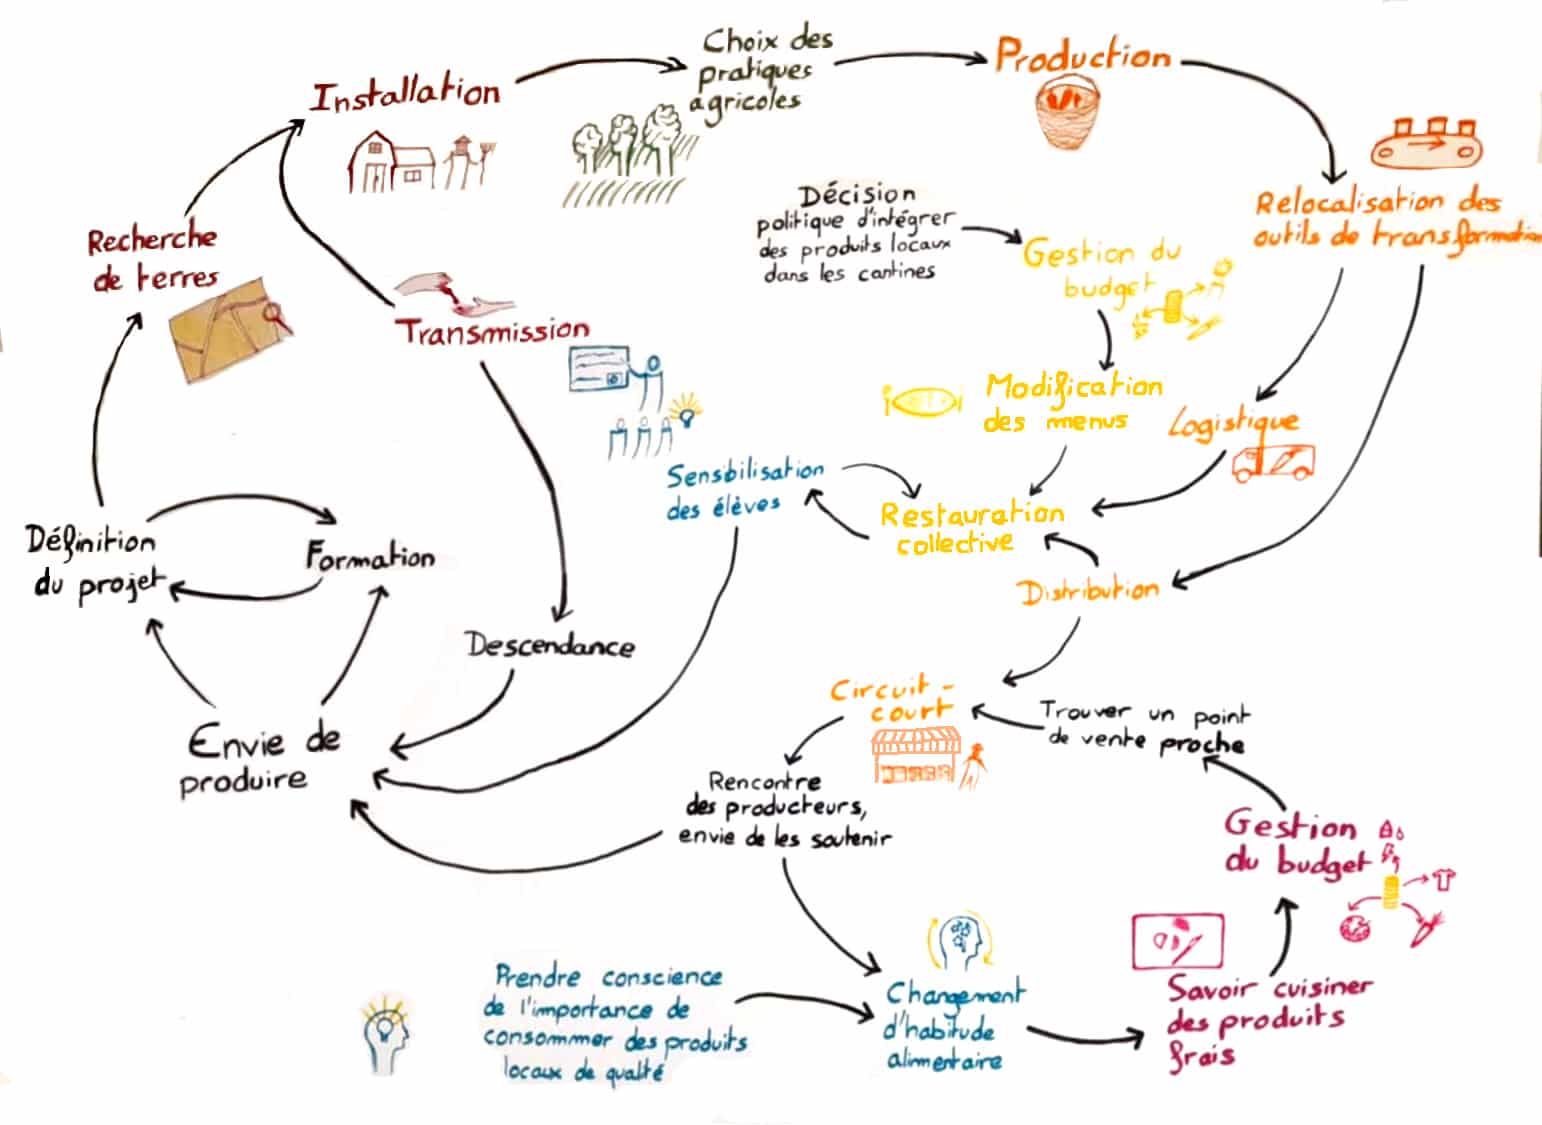 Installation
Choix des
pratiques
agricoles
Production
Relocalisation des
outils de transformation
Recherche
de terres
Décision
politique d'intégrer
des produits locaux
dans les cantines
Gestion du
budget
Transmission
Modification
des menus
Logistique
Sensbilisation
des élèves
Restauration
collective
Définition
du projet
Formation
Distribution
Descendance
Circuit-
court
Trouver un point
de vente proche
Envie de
produire
Rencontre
des producteurs,
envie de les soutenir
Gestion
du budget
Prendre conscience
de l'importance de
consommer des produits
locaux de qualité
Changement
d'habitude
alimentaire
Savoir cuisiner
des produits
frais